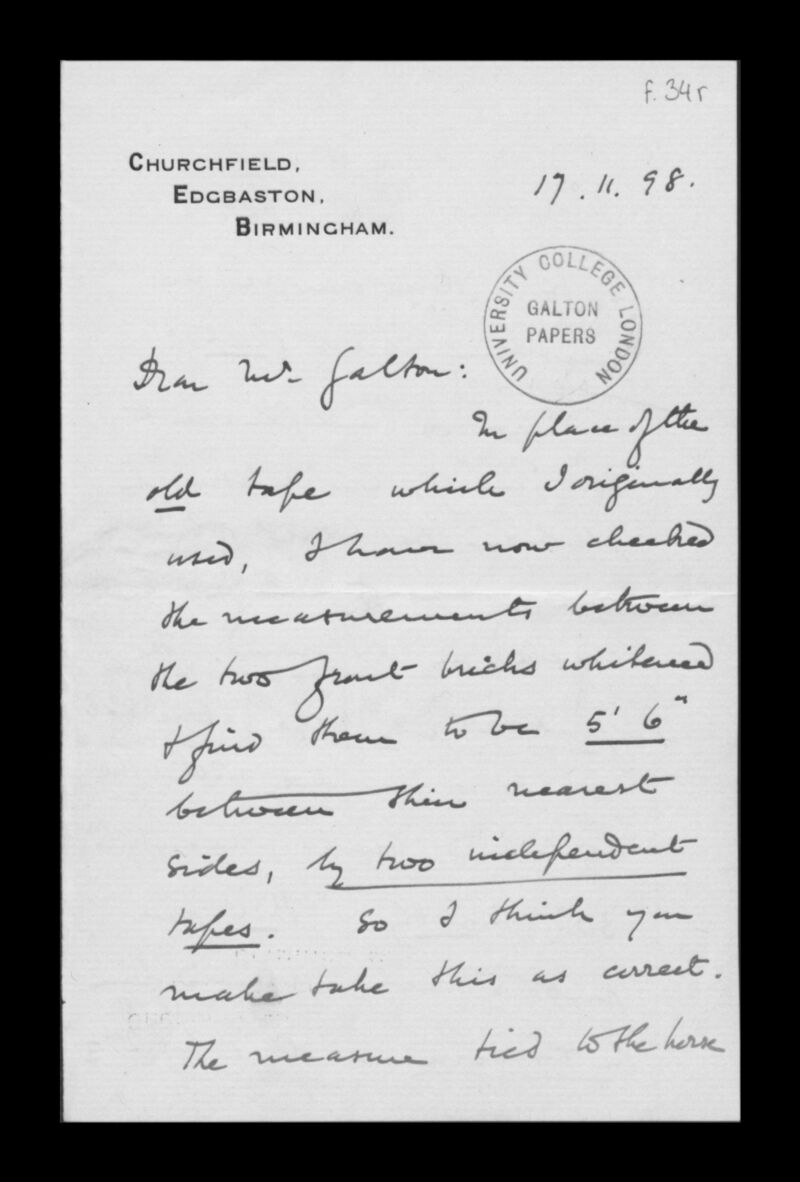 f. 34r
CHURCHFIELD,
EDGBASTON,
BIRMINGHAM.
17. 11. 98.
UNIVERSITY COLLEGE LONDON
GALTON
PAPERS
Dear Mr Galton:
In place of the
old tape which I originally
used, I have now checked
the measurements between
the two front bricks whitened
& find them to be 5' 6"
between their nearest
sides, by two independent
tapes. So I think you
make take this as correct.
The measure tied to the horse